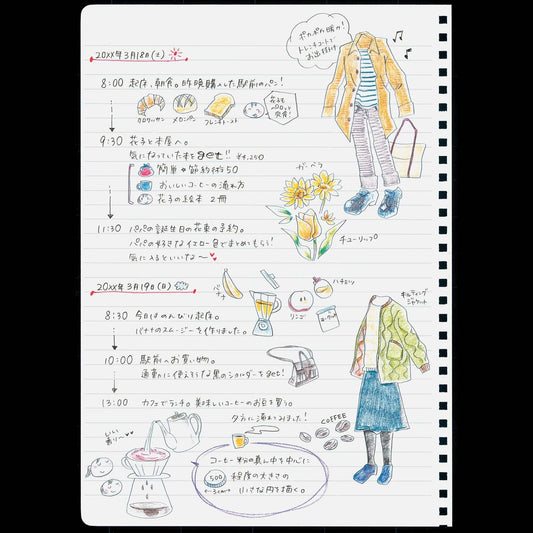 20XX年3月18日(土)
ポカポカ暖か!
トレンチコートで
お出掛け
8:00 起床、朝食。昨晩購入した駅前のパン!
クロワッサン メロンパン フレンチトースト
花子も
ペロッと
完食!
9:30 花子と本屋へ。
気になっていた本をget!! ¥4,250
簡単★節約術50
おいしいコーヒーの淹れ方
花子の絵本 2冊
ガーベラ
11:30 パパの誕生日の花束の予約。
パパの好きなイエロー色でまとめてもらう!
気に入るといいな〜
チューリップ
20XX年3月19日(日)
バナナ
ハチミツ
リンゴ
ヨーグルト
キルティング
ジャケット
8:30 今日はのんびり起床。
バナナのスムージーを作りました。
10:00 駅前へお買い物。
通勤に使えそうな黒のショルダーをget!
13:00 カフェでランチ。美味しいコーヒーのお豆を買う。
夕方に淹れてみました!
COFFEE
いい
香り〜
コーヒー粉の真ん中を中心に
500 程度の大きさの
小さな円を描く。